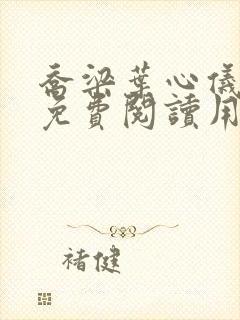 喬梁葉心儀
免費閱讀用
褚健